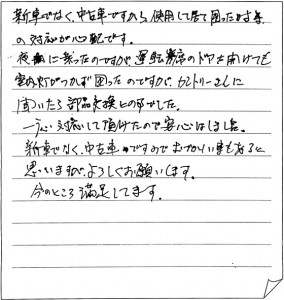 新車でなく、中古車ですから使用して居て困った時等
の対応が心配です。
夜間に乗ったのですが運転席のドアを開けても
室内灯がつかず困ったのですが、カントリーさんに
聞いたら部品交換との事でした。
一応対応して頂けたので安心はしました。
新車でなく、中古車ですので おかしい事も有ると
思いますが、よろしくお願いします。
今のところ満足してます。